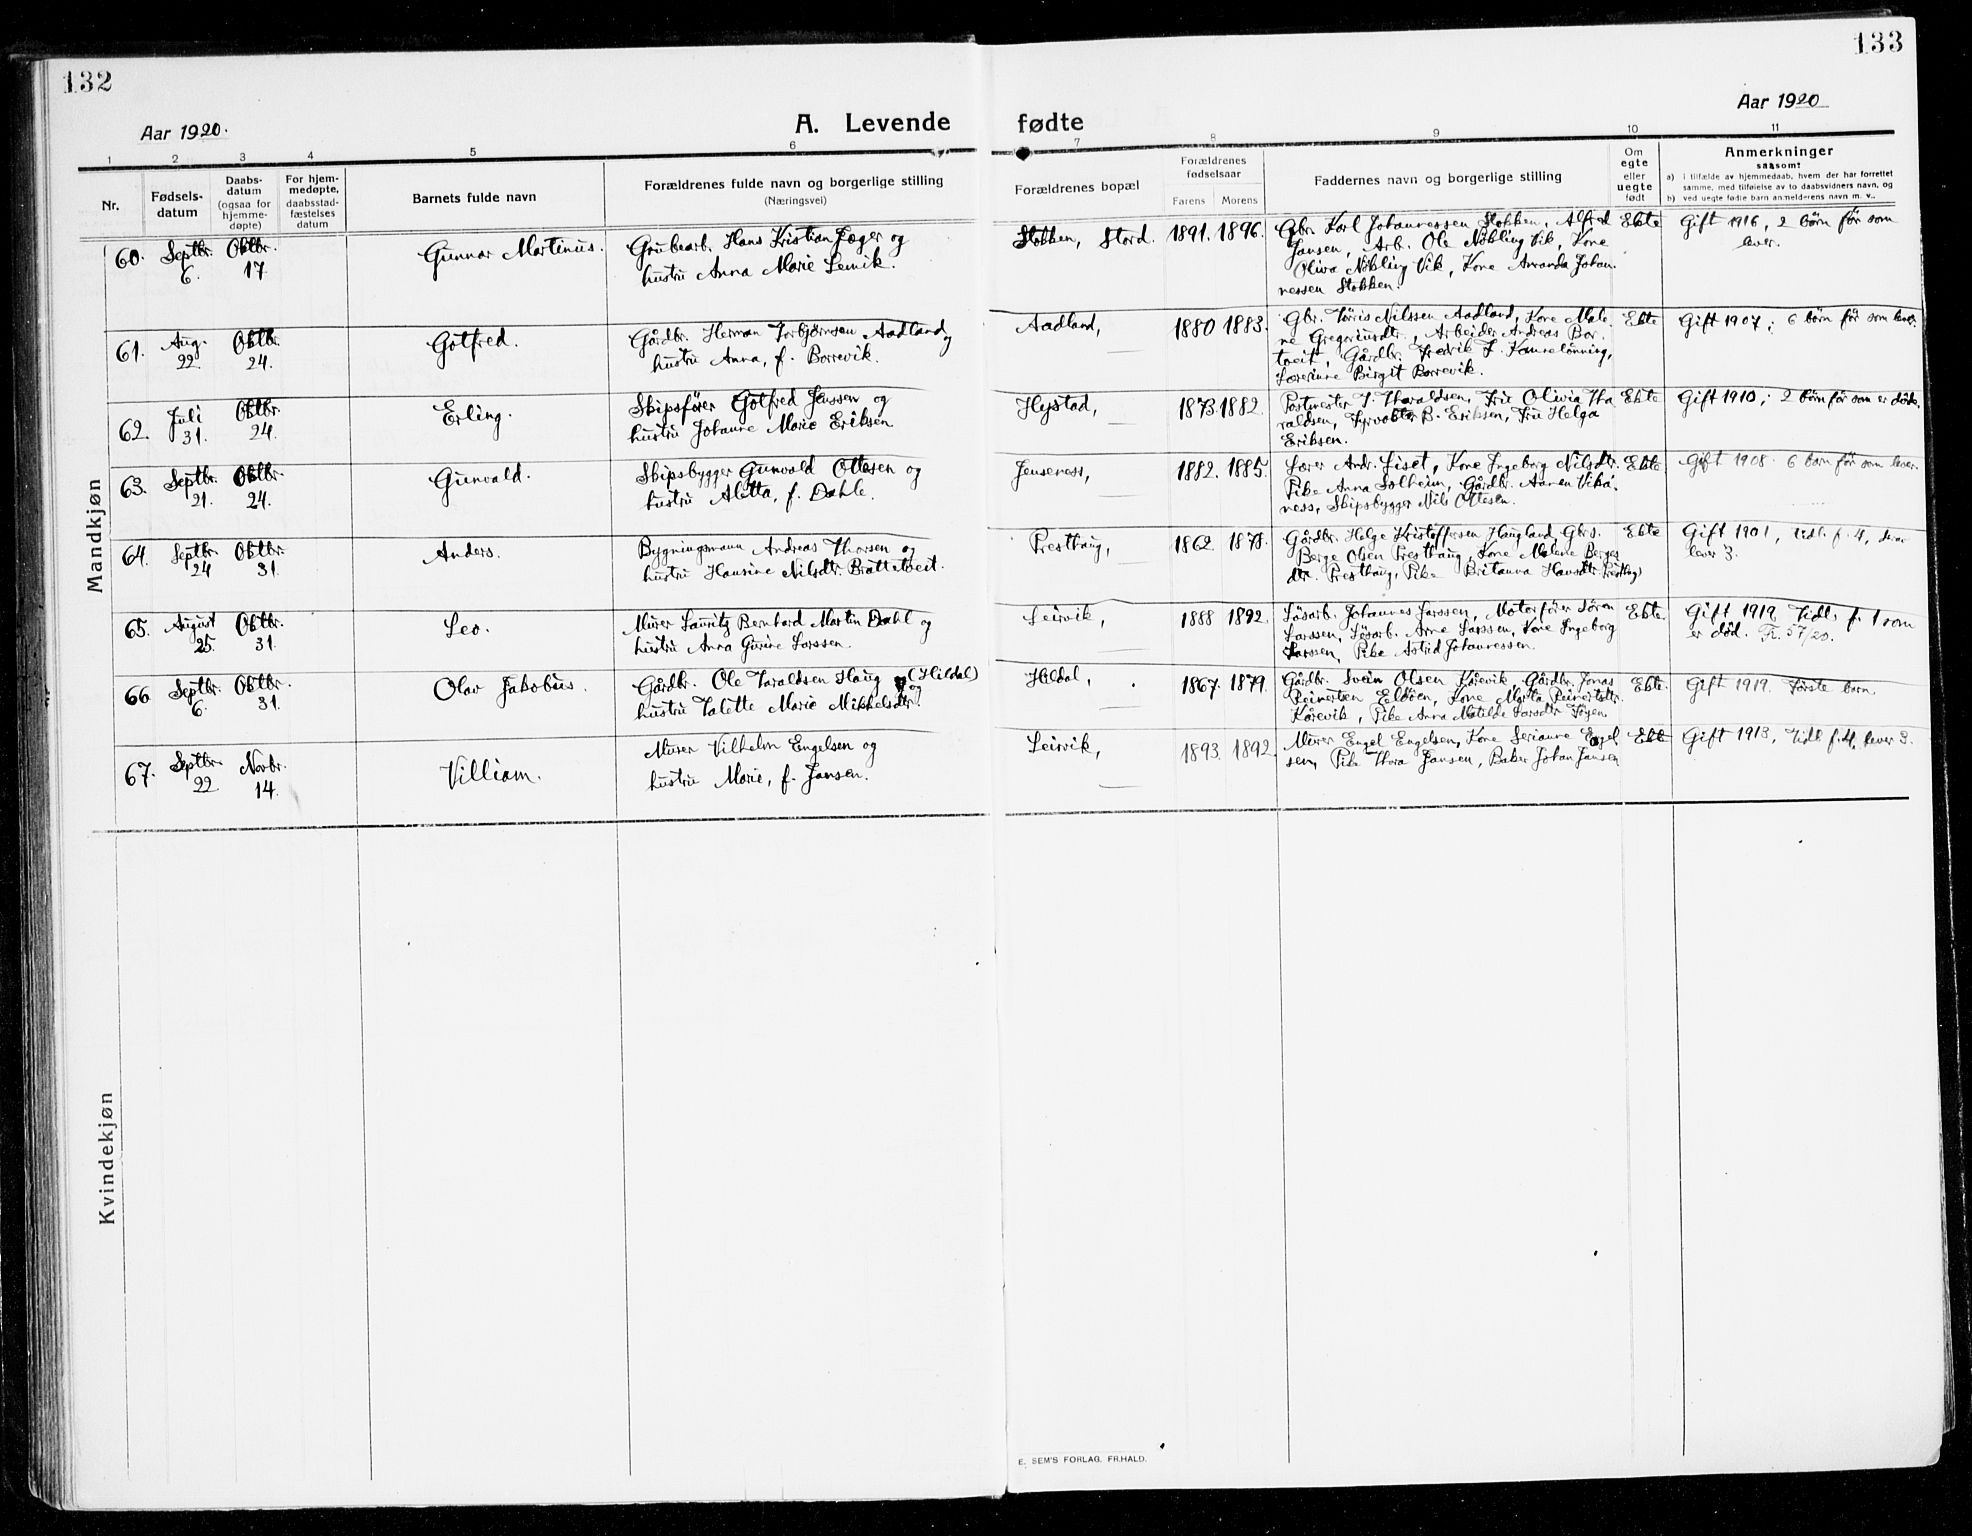 132
133
Aar 1920.
A. Levende fødte
Aar 1920
1 2 3 4 5 6 7 8 9 10 11
Nr.
Fødsels-
datum
Daabs-
datum
(ogsaa for
hjemme-
døpte)
For hjem-
medøpte,
daabsstad-
fæstelses
datum
Barnets fulde navn
Forældrenes fulde navn og borgerlige stilling
(Næringsvei)
Forældrenes bopæl
Forældrenes
fødselsaar
Farens Morens
Faddernes navn og borgerlige stilling
Om
egte
eller
uegte
født
Anmerkninger
saasomt
a) i tilfælde av hjemmedaab, hvem der har forrettet
samme, med tilføielse av to daabsvidners navn, og
b) ved uegte fødte barn anmelderens navn m. v..
Mandkjøn
60. Septbr. 6. Oktbr. 17. Gunnar Martinus.
Grubearb. Hans Kristian Jæger og
hustru Anna Marie Lemik.
Stokken, Stord. 1891. 1896.
Gbr. Karl Johannessen Stokken, Alfred
Jansen, Arb. Ole Nøkling Vik, Kone
Oliva Nøkling Vik, Kone Amanda Johan-
nessen Stokken.
Ekte
Gift 1916, 2 børn før som
lever.
61. Aug. 22 Oktbr. 24. Gotfred.
Gårdbr. Herman Torbjørnsen Aadland og
hustru Anna, f. Borrevik.
Aadland, 1880 1883.
Gbr. Tørris Nilssen Aadland, Kone Male-
ne Gregoriusdtr., Arbeider Andreas Bor-
tveit, Gårdbr. Fredrik J. Kannelønning,
Lærerinne Birgit Borrevik.
Ekte
Gift 1907; 6 børn før som lever.
62. Juli 31. Oktbr. 24. Erling.
Skipsfører Gotfred Jenssen og
hustru Johanne Marie Eriksen
Hystad, 1873. 1882.
Postmester J. Tharaldsen, Fru Olivia Tha
raldsen, Fyrvokter B. Eriksen, Fru Helga
Eriksen.
Ekte
Gift 1910; 2 børn før som er døde.
63. Septbr. 21. Oktbr. 24. Gunvald.
Skipsbygger Gunvald Ottesen og
hustru Aletta, f. Dahle.
Jenseness, 1882. 1885.
Lærer Andr. Liset, Kone Ingeborg Nilsdtr.
Pike Anna Solheim, Gårdbr. Aamen Vika-
ness, Skipsbygger Nils Ottesen.
Ekte
Gift 1908. 6 børn før som lever.
64. Septbr. 24 Oktbr. 31. Anders.
Bygningsmann Andreas Thorsen og
hustru Hansine Nilsdtr. Brattetveit.
Presthaug, 1862. 1878.
Gårdbr. Helge Kristoffersen Haugland, Gbr.
Berge Olsen Presthaug, Kone Malene Berges
dtr. Presthaug, Pike Britanna Hansdtr. Presthaug
Ekte
Gift 1901, tidl. f. 4, derav
lever 3.
65. August 25. Oktbr. 31. Leo.
Murer Lauritz Bernhard Martin Dahl og
hustru Anna Gurine Larssen.
Leirvik, 1888 1892.
Løsarb. Johannes Larssen, Motorfører Søren
Larssen, Løsarb. Arne Larssen, Kone Ingeborg
Larssen, Pike Astrid Johannessen.
Ekte.
Gift 1912 Tidl. f. 1 som
er død. Fr. 57/20.
66 Septbr. 6. Oktbr. 31. Olav Jakobus.
Gårdbr. Ole Taraldsen Haug (Hildal)
og hustru Valette Marie Mikkelsdtr.
Hildal, 1867. 1879.
Gårdbr. Svein Olsen Kårevik, Gårdbr. Jonas
Reinertsen Eldøen, Kone Marta Reinertsdtr.
Kårevik, Pike Anna Matilde Larsdtr. Føyen.
Ekte.
Gift 1919. Første barn.
67. Septbr. 22 Novbr. 14. Villiam.
Murer Vilhelm Engelsen og
hustru Marie, f. Jansen.
Leirvik, 1893. 1892.
Murer Engel Engelsen, Kone Serianne Engel
sen, Pike Thora Jansen, Baker Johan Jansen
Ekte
Gift 1913, Tidl f. 4, lever 3.
Kvindekjøn
E. SEM'S FORLAG. FR.HALD.